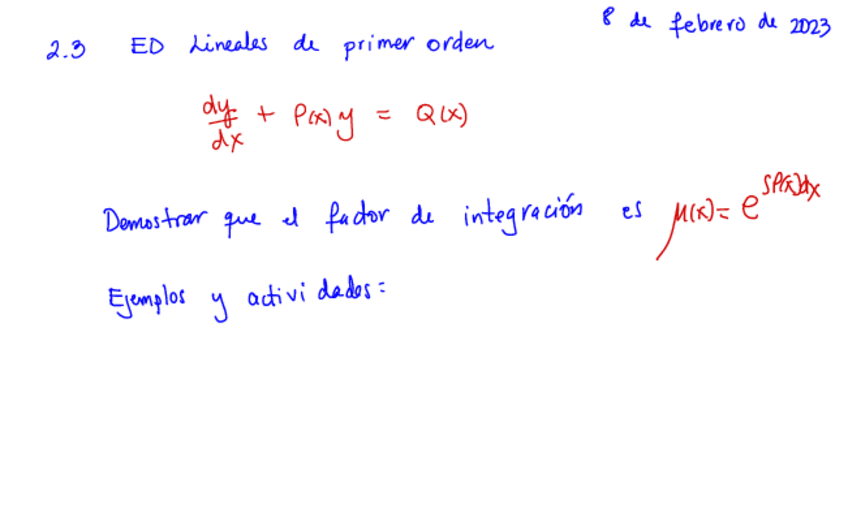 8 de febrero de 2023
2.3 ED Lineales de primer orden
dy/dx + P(x) y = Q(x)
Demostrar que el factor de integración es μ(x) = e^∫P(x)dx
Ejemplos y actividades: